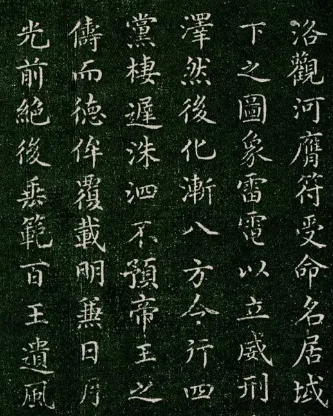 洛觀河膺符受命名居域
下之圖象雷電以立威刑
澤然後化漸八方令行四
黨棲遲洙泗不預帝王之
儔而德侔覆載明兼日月
光前絕後垂範百王遺風